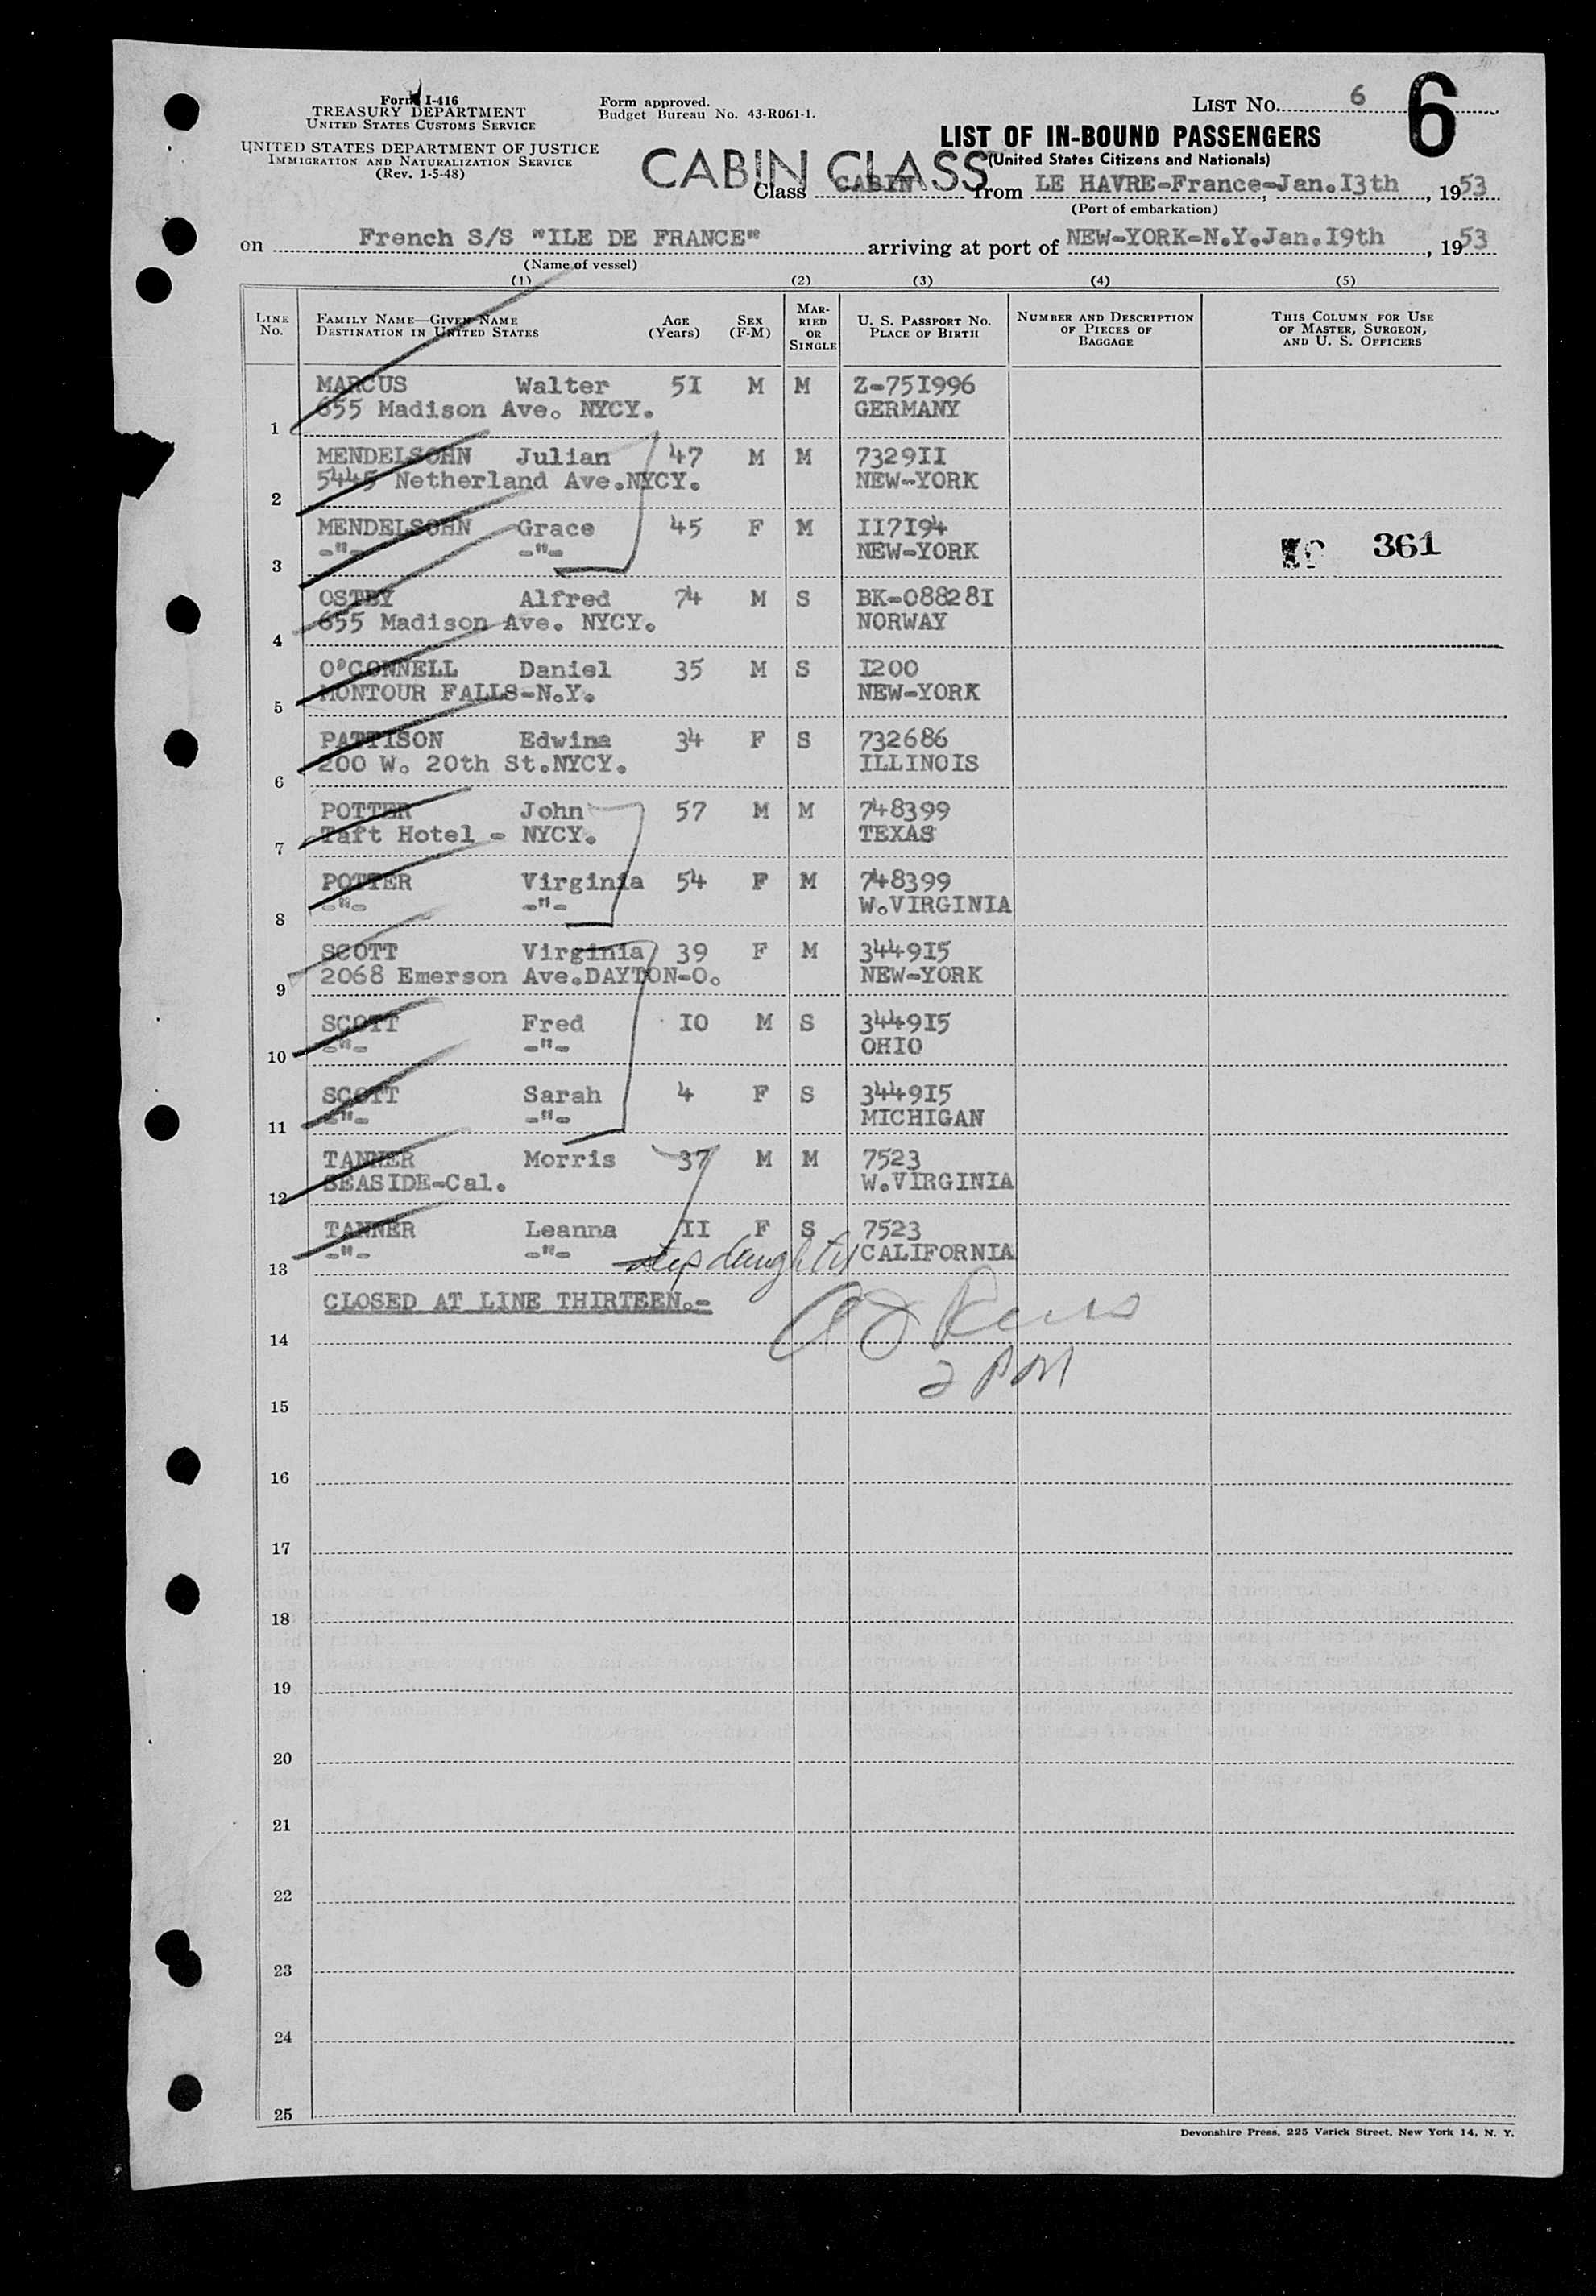 Form I-416
TREASURY DEPARTMENT
UNITED STATES CUSTOMS SERVICE
UNITED STATES DEPARTMENT OF JUSTICE
IMMIGRATION AND NATURALIZATION SERVICE
(Rev. 1-5-48)
Form approved.
Budget Bureau No. 43-R061-1.
LIST No. 6
6
LIST OF IN-BOUND PASSENGERS
(United States Citizens and Nationals)
CABIN CLASS
Class CABIN from LE HAVRE-France,-Jan.I3th, 1953
(Port of embarkation)
on French S/S "ILE DE FRANCE" arriving at port of NEW-YORK-N.Y.Jan.I9th, 1953
(Name of vessel)
(1) (2) (3) (4) (5)
LINE No. FAMILY NAME—GIVEN NAME DESTINATION IN UNITED STATES AGE (Years) SEX (F-M) MARRIED OR SINGLE U. S. PASSPORT NO. PLACE OF BIRTH NUMBER AND DESCRIPTION OF PIECES OF BAGGAGE THIS COLUMN FOR USE OF MASTER, SURGEON, AND U. S. OFFICERS
MARCUS Walter 5I M M Z-75I996
1 655 Madison Ave. NYCY. GERMANY
MENDELSOHN Julian 47 M M 7329II
2 5445 Netherland Ave.NYCY. NEW-YORK
MENDELSOHN Grace 45 F M II7I94
3 -"- -"- NEW-YORK 361
OSTBY Alfred 74 M S BK-08828I
4 655 Madison Ave. NYCY. NORWAY
O'CONNELL Daniel 35 M S I200
5 MONTOUR FALLS-N.Y. NEW-YORK
PATTISON Edwina 34 F S 732686
6 200 W. 20th St.NYCY. ILLINOIS
POTTER John 57 M M 748399
7 Taft Hotel - NYCY. TEXAS
POTTER Virginia 54 F M 748399
8 -"- -"- W.VIRGINIA
SCOTT Virginia 39 F M 3449I5
9 2068 Emerson Ave.DAYTON-O. NEW-YORK
SCOTT Fred IO M S 3449I5
10 -"- -"- OHIO
SCOTT Sarah 4 F S 3449I5
11 -"- -"- MICHIGAN
TANNER Morris 37 M M 7523
12 SEASIDE-Cal. W.VIRGINIA
TANNER Leanna II F S 7523
13 -"- -"- step daughter CALIFORNIA
CLOSED AT LINE THIRTEEN.-
14
2 PM
15
16
17
18
19
20
21
22
23
24
25
Devonshire Press, 225 Varick Street, New York 14, N. Y.